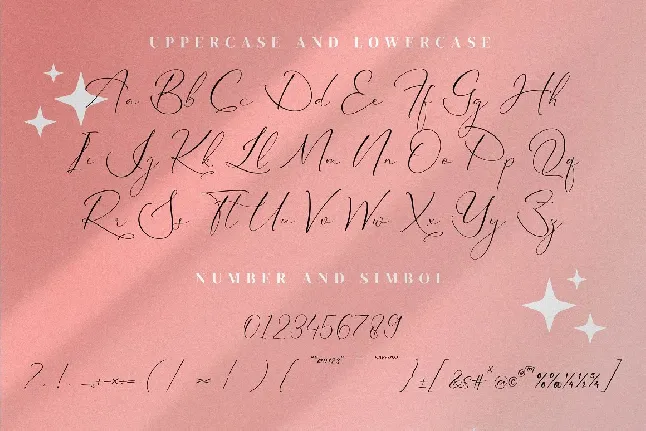 UPPERCASE AND LOWERCASE
Aa Bb Cc Dd Ee Ff Gg Hh
Ii Jj Kk Ll Mm Nn Oo Pp Qq
Rr Ss Tt Uu Vv Ww Xx Yy Zz
NUMBER AND SIMBOL
0123456789
? . ! _ + - × ÷ = ( / \ ) { } ± [ & $ # @ © % ¼ ½ ¾ ]